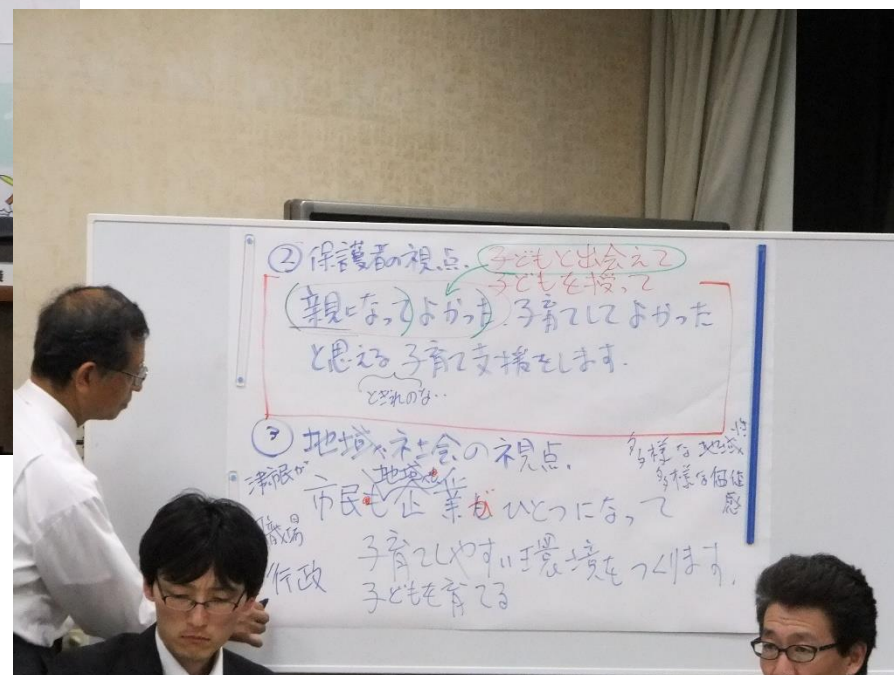 ② 保護者の視点.
子どもと出会えて
子どもを授って
(親になって)よかった.子育てしてよかった
と思える子育て支援をします.
とぎれのな‥
③ 地域、社会の視点.
多様な地域性
多様な価値感
津市民が
地域も
市民も企業も ひとつになって
職場
行政
子育てしやすい環境をつくります.
子どもを育てる